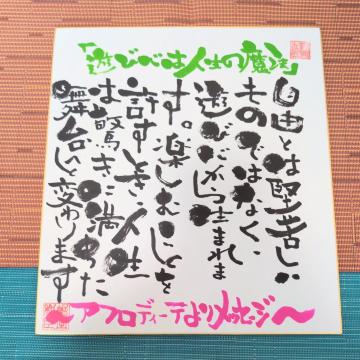 「遊び心は人生の魔法」
自由とは堅苦しい
ものではなく、
遊び心から生まれま
す。楽しむことを
許すとき、人生
は驚きに満ちた
舞台へと変わります
アフロディーテよりメッセージ〜